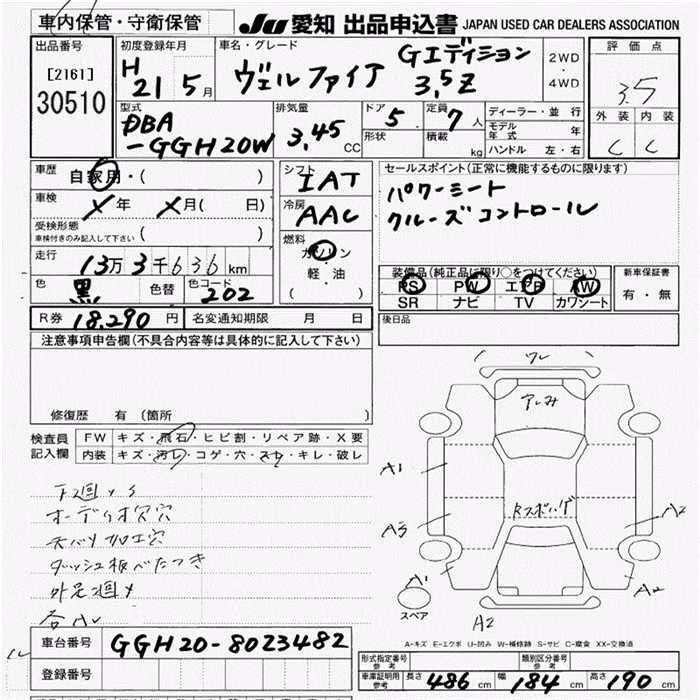 車内保管・守衛保管
JU 愛知 出品申込書 JAPAN USED CAR DEALERS ASSOCIATION
出品番号
[2161]
30510
初度登録年月
H 21 5月
車名・グレード
ヴェルファイア Gエディション 3.5Z
2WD・4WD
評価点
3.5
外装 内装
C C
型式
DBA-GGH20W
排気量
3.45 CC
ドア 5
形状
定員 7人
積載 kg
ディーラー・並行
モデル年式 年
ハンドル 左・右
車歴
自家用・( )
車検 X年 X月( 日)
受検形態
車検付きのみ記入して下さい ( )
走行
13万3千636km
色 黒 色替 色コード 202
シフト IAT
冷房 AAC
燃料
ガソリン
軽・油
( )
セールスポイント(正常に機能するものに限ります)
パワーシート
クルーズコントロール
装備品(純正品に限り○をつけてください)
PS PW エアB AW
SR ナビ TV カワシート
新車保証書
有・無
R券 18,290円 名変通知期限 月 日
後日品
注意事項申告欄(不具合内容等は具体的に記入して下さい)
修復歴 有(箇所 )
検査員記入欄
FW キズ・飛石・ヒビ割・リペア跡・X要
内装 キズ・汚レ・コゲ・穴・スレ・キレ・破レ
オーディオ穴穴
天バリ加工穴
ダッシュ板べたつき
ワレ
A1
A3
A1
A2
A2
A2
スペア
A-キズ E-エクボ U-凹み W-補修跡 S-サビ C-腐食 XX-交換済
車台番号 GGH20-8023482
登録番号
形式指定番号 参考
類別区分番号 参考
車庫証明用参考 長さ 486cm 幅 184cm 高さ 190cm